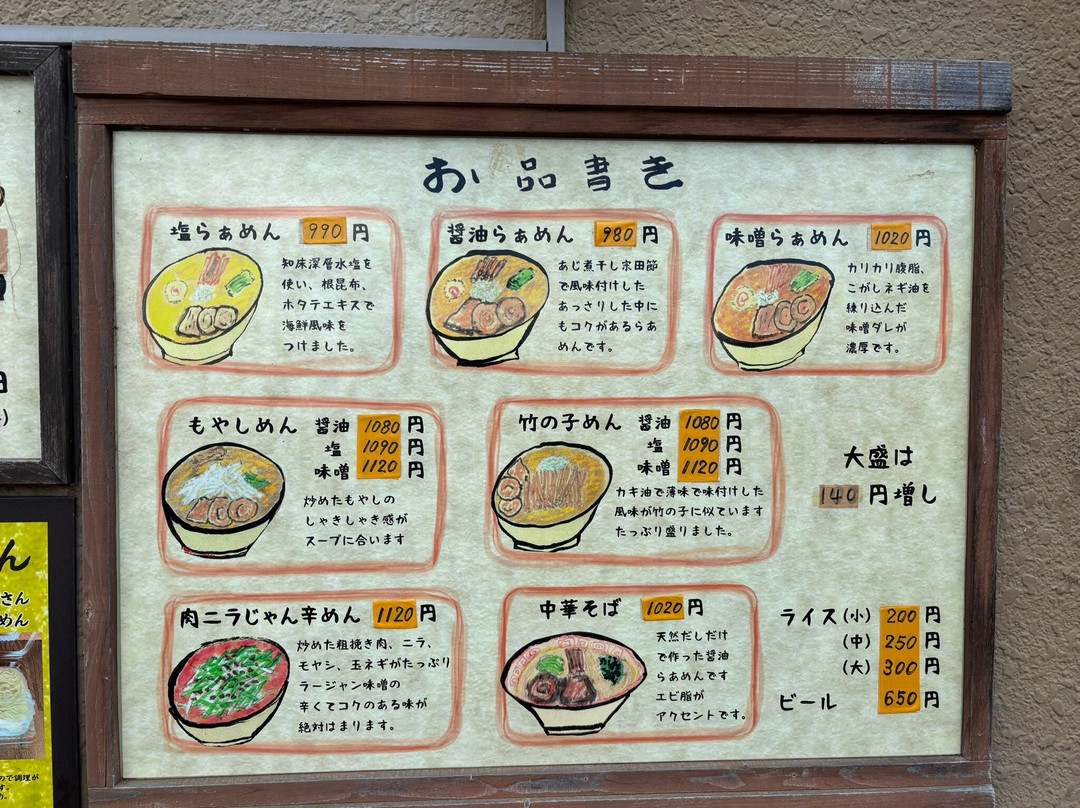 お品書き
塩らぁめん 990円
知床深層水塩を
使い、根昆布、
ホタテエキスで
海鮮風味を
つけました。
醤油らぁめん 980円
あじ煮干し宗田節
で風味付けした
あっさりした中に
もコクがあるらぁ
めんです。
味噌らぁめん 1020円
カリカリ腹脂、
こがしネギ油を
練り込んだ
味噌ダレが
濃厚です。
もやしめん 醤油 1080円
塩 1090円
味噌 1120円
炒めたもやしの
しゃきしゃき感が
スープに合います
竹の子めん 醤油 1080円
塩 1090円
味噌 1120円
カキ油で薄味で味付けした
風味が竹の子に似ています
たっぷり盛りました。
大盛は
140円増し
肉ニラじゃん辛めん 1120円
炒めた粗挽き肉、ニラ、
モヤシ、玉ネギがたっぷり
ラージャン味噌の
辛くてコクのある味が
絶対はまります。
中華そば 1020円
天然だしだけ
で作った醤油
らぁめんです
エビ脂が
アクセントです。
ライス(小) 200円
(中) 250円
(大) 300円
ビール 650円
ん
さん
めん
ので調理が
す。